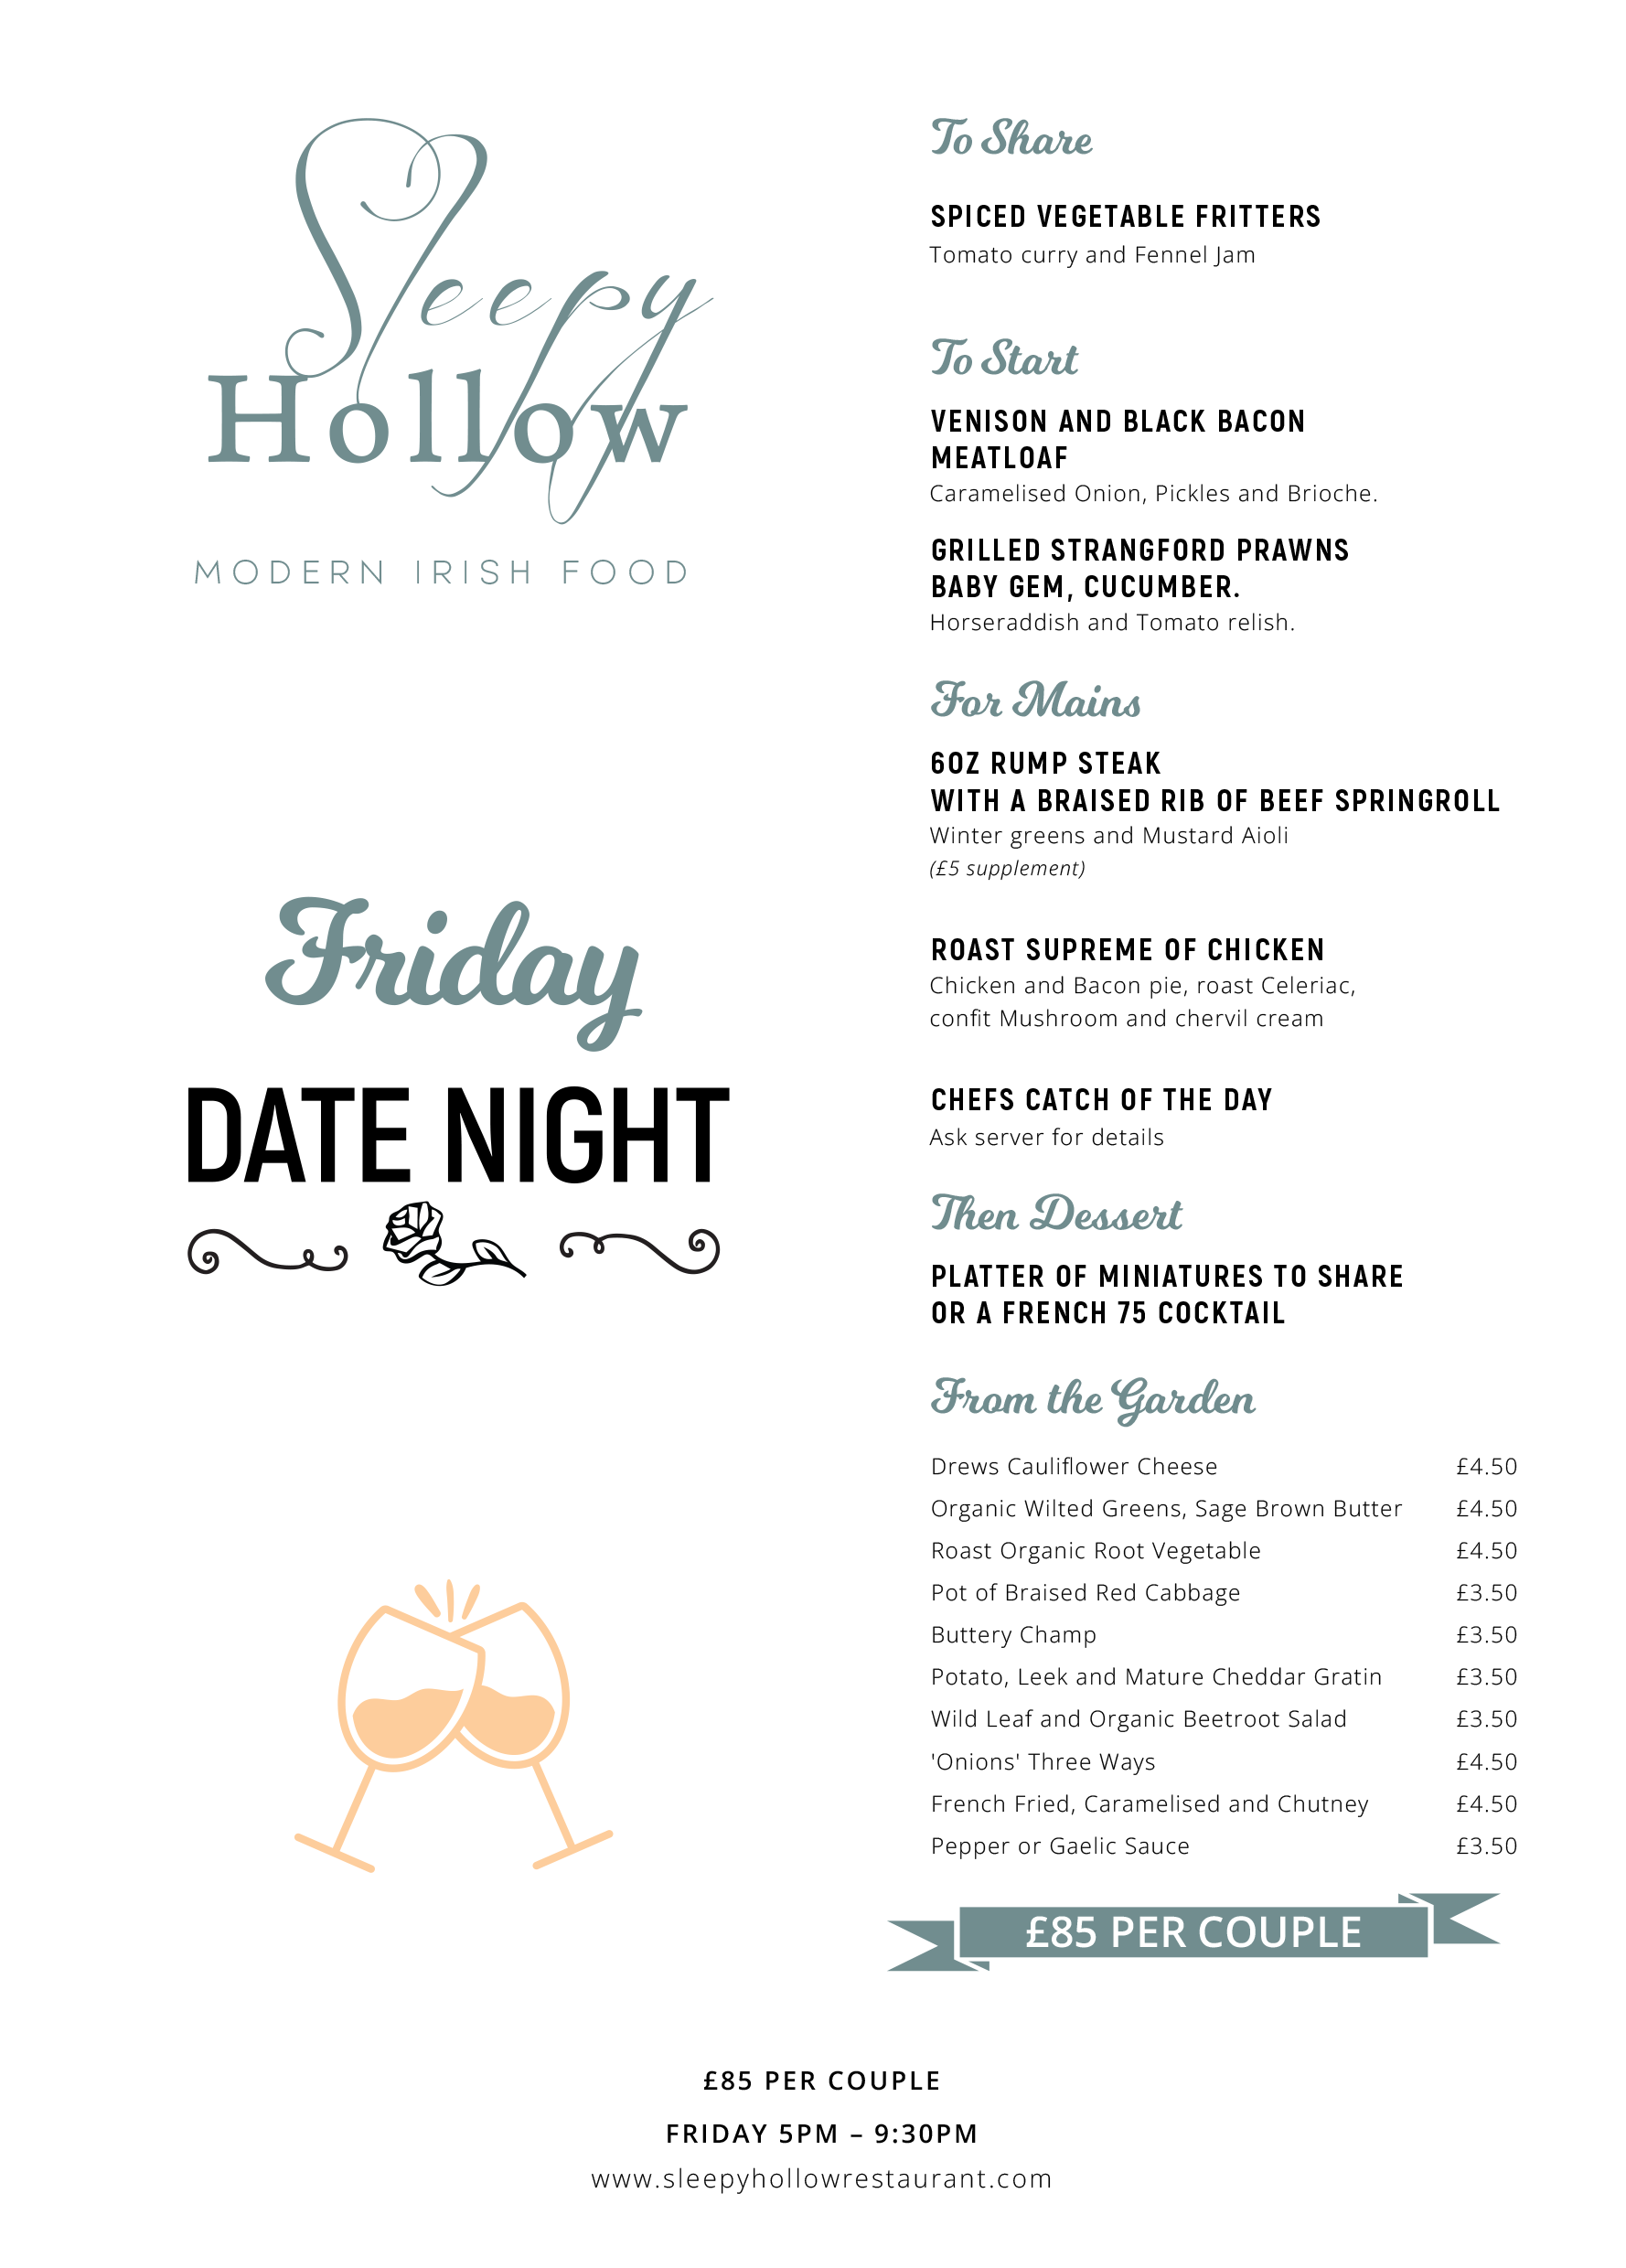 Sleepy
Hollow
MODERN IRISH FOOD
Friday
DATE NIGHT
To Share
SPICED VEGETABLE FRITTERS
Tomato curry and Fennel Jam
To Start
VENISON AND BLACK BACON
MEATLOAF
Caramelised Onion, Pickles and Brioche.
GRILLED STRANGFORD PRAWNS
BABY GEM, CUCUMBER.
Horseraddish and Tomato relish.
For Mains
6OZ RUMP STEAK
WITH A BRAISED RIB OF BEEF SPRINGROLL
Winter greens and Mustard Aioli
(£5 supplement)
ROAST SUPREME OF CHICKEN
Chicken and Bacon pie, roast Celeriac,
confit Mushroom and chervil cream
CHEFS CATCH OF THE DAY
Ask server for details
Then Dessert
PLATTER OF MINIATURES TO SHARE
OR A FRENCH 75 COCKTAIL
From the Garden
Drews Cauliflower Cheese £4.50
Organic Wilted Greens, Sage Brown Butter £4.50
Roast Organic Root Vegetable £4.50
Pot of Braised Red Cabbage £3.50
Buttery Champ £3.50
Potato, Leek and Mature Cheddar Gratin £3.50
Wild Leaf and Organic Beetroot Salad £3.50
'Onions' Three Ways £4.50
French Fried, Caramelised and Chutney £4.50
Pepper or Gaelic Sauce £3.50
£85 PER COUPLE
£85 PER COUPLE
FRIDAY 5PM – 9:30PM
www.sleepyhollowrestaurant.com